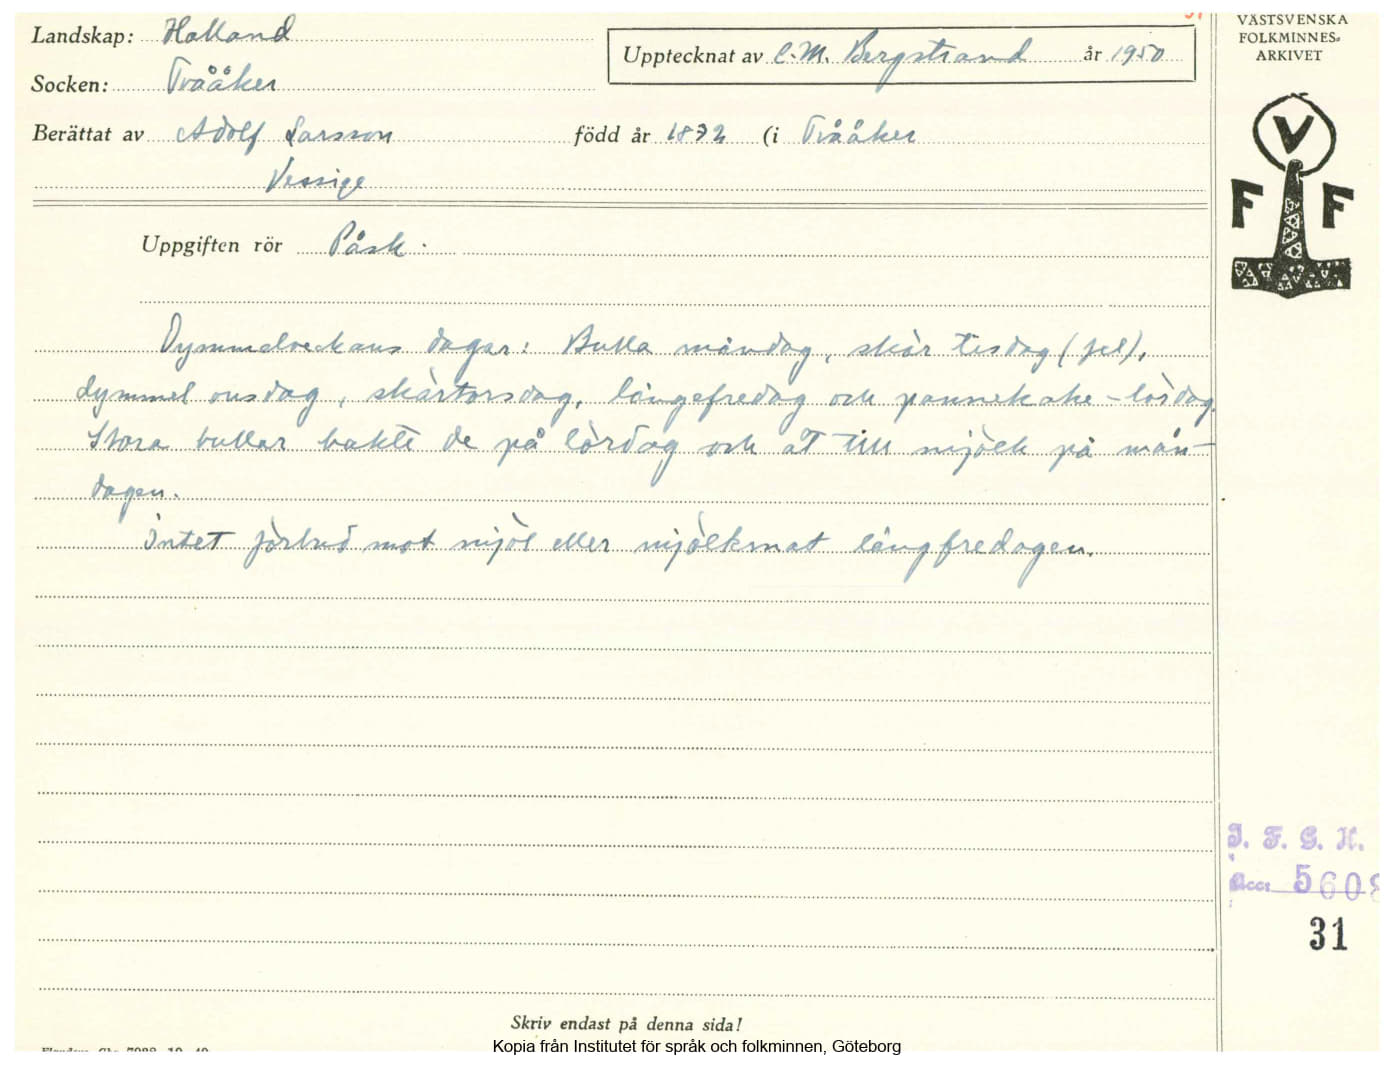 Landskap: Halland
Socken: Tvååker
Upptecknat av C.M. Bergstrand år 1950
Berättat av Adolf Larsson född år 1872 (i Tvååker
Vessige
Uppgiften rör Påsk.
Dymmelveckans dagar: Bulla måndag, skär tisdag (fel),
dymmel onsdag, skärtorsdag, långefredag och pannekake-lördag.
Stora bullar bakte de på lördag och åt till mjölk på mån-
dagen.
Intet förbud mot mjöl eller mjölkmat långfredagen.
Skriv endast på denna sida!
Kopia från Institutet för språk och folkminnen, Göteborg
VÄSTSVENSKA
FOLKMINNES-
ARKIVET
V
F F
I. F. G. H.
Acc: 5608
31